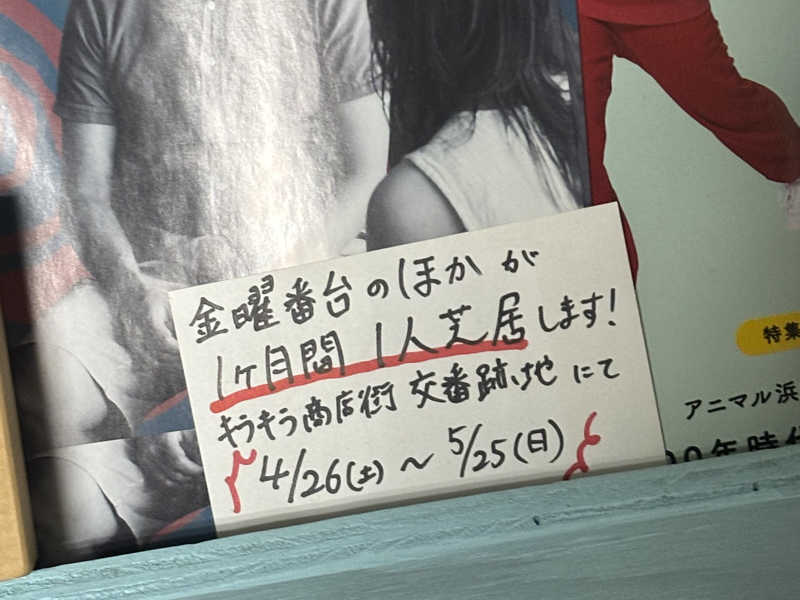 金曜番台のほかが
1ヶ月間 1人芝居します!
キラキラ商店街 交番跡地にて
4/26(土)〜5/25(日)
特集
アニマル浜
00年時代